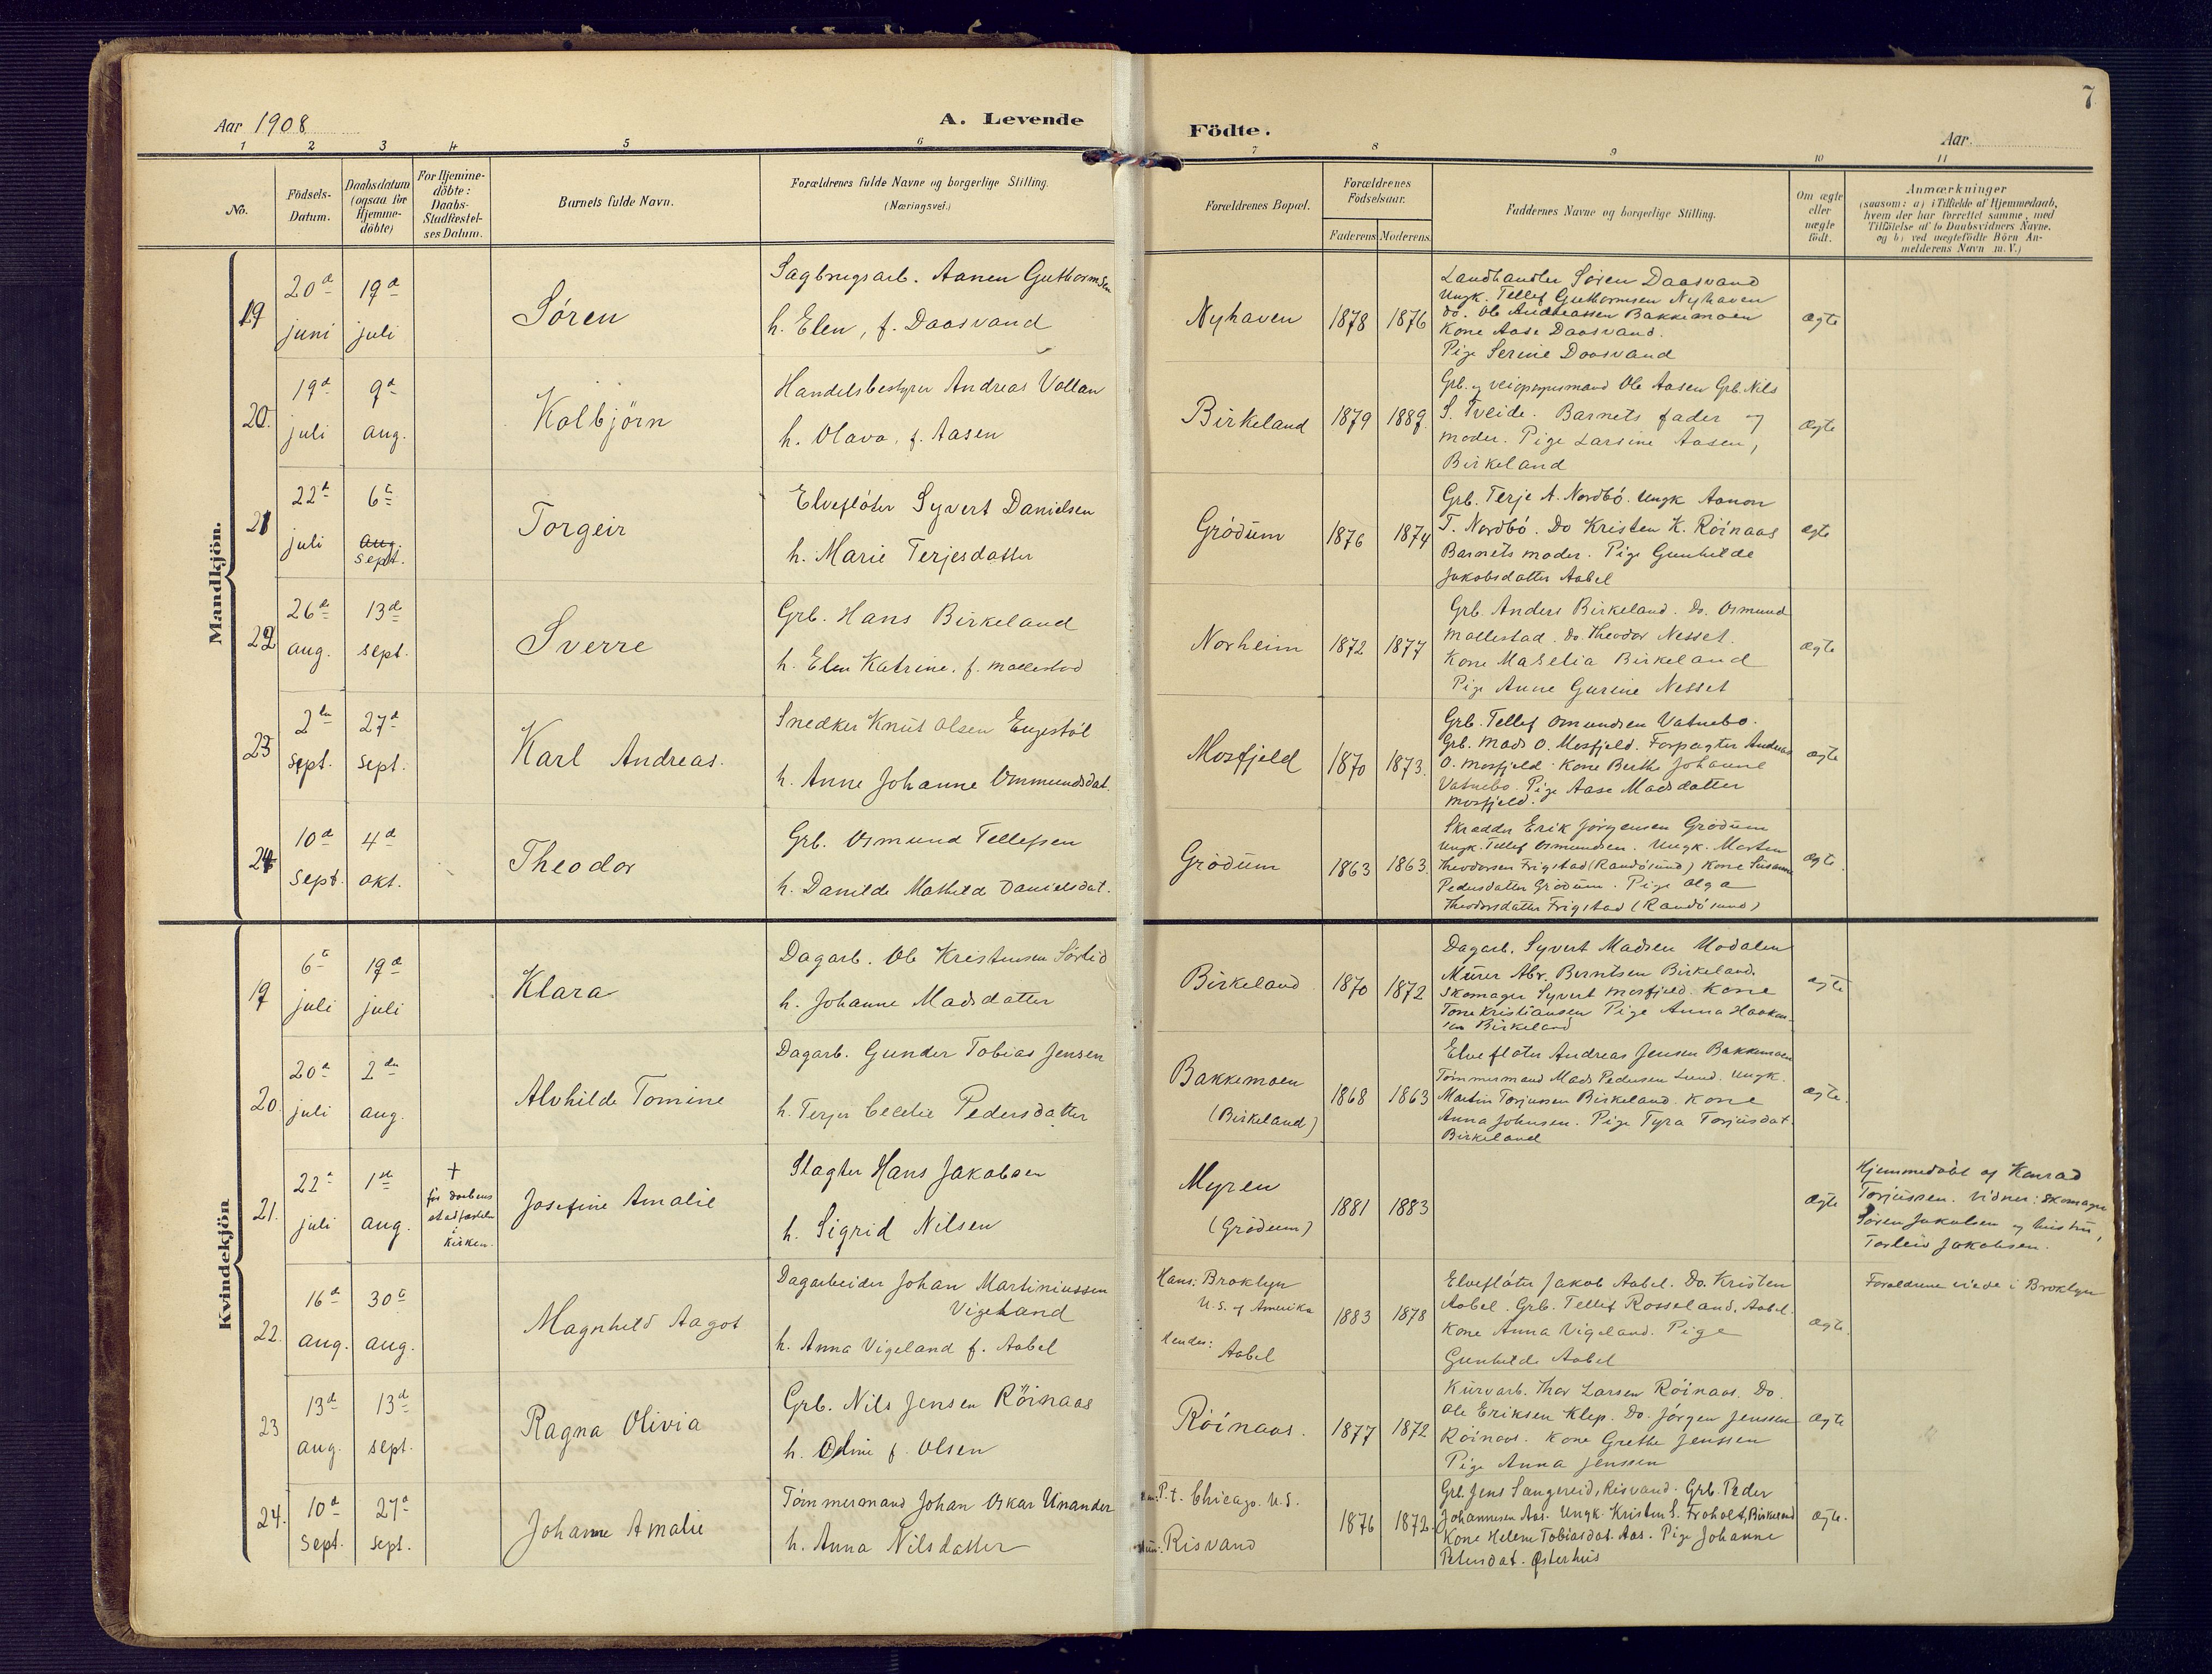 7
Aar 1908
A. Levende
Födte.
Aar
1 2 3 4 5 6 7 8 9 10 11
No.
Födsels-
Datum.
Daabsdatum
(ogsaa for
Hjemme-
döbte)
For Hjemme-
döbte:
Daabs-
Stadfæstel-
ses Datum.
Barnets fulde Navn.
Forældrenes fulde Navne og borgerlige Stilling.
(Næringsvei.)
Forældrenes Bopæl.
Forældrenes
Födselsaar.
Faderens Moderens
Faddernes Navne og borgerlige Stilling.
Om ægte
eller
uægte
födt.
Anmærkninger
(saasom: a) i Tilfælde af Hjemmedaab,
hvem der har forrettet samme, med
Tilföielse af to Daabsvidners Navne.
og b) ved uægtefödte Börn An-
melderens Navn m. V.)
Mandkjön.
19
20d juni
19d juli
Sören
Sagbrugsarb. Aanen Guttormsen
h. Elen, f. Daasvand
Nyhaven
1878 1876
Landhandler Sören Daasvand
Ungk. Tellef Guttormsen Nyhaven
do. Ole Andreassen Bakkemoen
Kone Aase Daasvand.
Pige Serine Daasvand
ægte
20.
19d juli
9d aug.
Kolbjörn
Handelsbestyrer Andreas Vollan
h. Olava, f. Aasen
Birkeland
1879 1889
Grb. og Ole Aasen Grb. Nils
S. Tveide. Barnets fader og
moder. Pige Larsine Aasen,
Birkeland
ægte
21
22d juli
6t aug. sept.
Torgeir
Elveflöter Syvert Danielsen
h. Marie Terjesdatter
Grödum
1876 1874
Grb. Terje A. Nordbö. Ungk Aanon
T. Nordbö. Do Kristen K. Röinaas
Barnets moder. Pige Gunhilde
Jakobsdatter Aabel
ægte
22
26de aug.
13de sept.
Sverre
Grb. Hans Birkeland
h. Elen Katrine. f. Mollestad
Norheim
1872 1877
Grb. Anders Birkeland. Do. Osmund
Mollestad. Do. Theodor Nesset.
Kone Maselia Birkeland
Pige Anne Gurine Nesset
ægte
23
2den sept.
27d sept.
Karl Andreas.
Snedker Knut Olsen Engestöl
h. Anne Johanne Ommundsdat.
Mosfjeld
1870 1873.
Grb. Tellef Omundsen Vatnebo.
Grb. Mads O. Mosfjeld. Forpagter Andreas
O. Mosfjeld. Kone Berthe Johanne
Vatnebo. Pige Aase Madsdatter
Mosfjeld.
ægte
24
10d sept.
4d okt.
Theodor
Grb. Osmund Tellefsen
h. Danilde Mathilde Danielsdat.
Grödum
1863 1863.
Skrædder Erik Jörgensen Grödum
Ungk. Tellef Osmundsen. Ungk. Morten
Theodorsen Frigstad (Randösund) Kone Susanne
Pedersdatter Grödum. Pige Olga
Theodorsdatter Frigstad (Randösund)
ægte
Kvindekjön
19
6t juli
19d juli
Klara
Dagarb. Ole Kristensen Sörlid
h. Johanne Madsdatter
Birkeland
1870 1872
Dagarb. Syvert Madsen Modalen
Murer Abr. Berntsen Birkeland.
Skomager Syvert Mosfjeld. Kone
Tone Kristiansen Pige Anna Haaken-
sen Birkeland
ægte
20.
20d juli
2den aug.
Alvhilde Tomine
Dagarb. Gunder Tobias Jensen
h. Terjer Cecelie Pedersdatter
Bakkemoen
(Birkeland)
1868 1863
Elveflöter Andreas Jensen Bakkemoen
Tömmermand Mads Pedersen Lund. Ungk.
Martin Torjussen Birkeland. Kone
Anna Johnsen. Pige Tyra Torjusdat.
Birkeland
ægte.
21.
22d juli
1ste aug.
†
før daabens
stadfæstelse
i
kirken.
Josefine Amalie
Slagter Hans Jakobsen
h. Sigrid Nilsen
Myren
(Grödum)
1881 1883
ægte
Hjemmedöbt af Konrad
Torjussen. Vidner: Skomager
Sören Jakobsen og hustru,
Torleiv Jakobsen.
22.
16d aug.
30t aug.
Magnhild Aagot
Dagarbeider Johan Martiniussen
Vigeland
h. Anna Vigeland f. Aabel
Hans: Broklyn
U.S. af Amerika
Hendes: Aabel
1883 1878
Elveflöter Jakob Aabel. Do. Kristen
Aabel. Grb. Tellef Rosseland, Aabel.
Kone Anna Vigeland. Pige
Gunhilde Aabel
ægte.
Forældrene viede i Broklyn
23
13d aug.
13d sept.
Ragna Olivia
Grb. Nils Jensen Röinaas
h. Oline f. Olsen
Röinaas.
1877 1872
Kurvarb. Thor Larsen Röinaas. Do.
Ole Eriksen Klep. Do. Jörgen Jenssen
Röinaas. Kone Grethe Jenssen
Pige Anna Jenssen
ægte
24.
10d sept.
27d sept.
Johanne Amalie
Tömmermand Johan Oskar Unander
h. Anna Nilsdatter
P.t. Chicago. U.S.
Risvand
1876 1872.
Grb. Jens Sangereid, Risvand. Grb. Peder
Johannesen Aas. Ungk. Kristen S. Froholt, Birkeland
Kone Helene Tobiasdat. Aas. Pige Johanne
Petersdat. Østerhus
ægte.